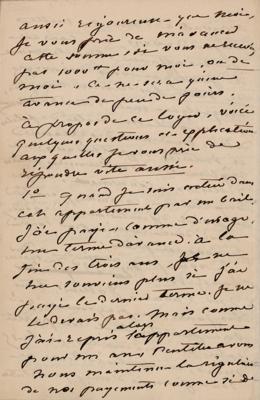 aussi rigoureuse que moi,
Je vous prie de m'avancer
cette somme, si vous ne recevez
pas 1000 frs pour moi, ou de
moins. Ce ne sera qu'une
avance de peu de jours.
à propos de ce loyer, voici
quelques questions et explications
auxquelles je vous prie de
répondre vite aussi.
1° Quand je suis entrée dans
cet appartement par un bail,
J'ai payé, comme d'usage,
un terme d'avance. à la
fin des trois ans, je ne
me souviens plus si j'ai
payé le dernier terme. Je ne
le devais pas. Mais comme
j'ai repris alors l'appartement
pour un an,
nous maintenu la régularité
de nos payements comme si de